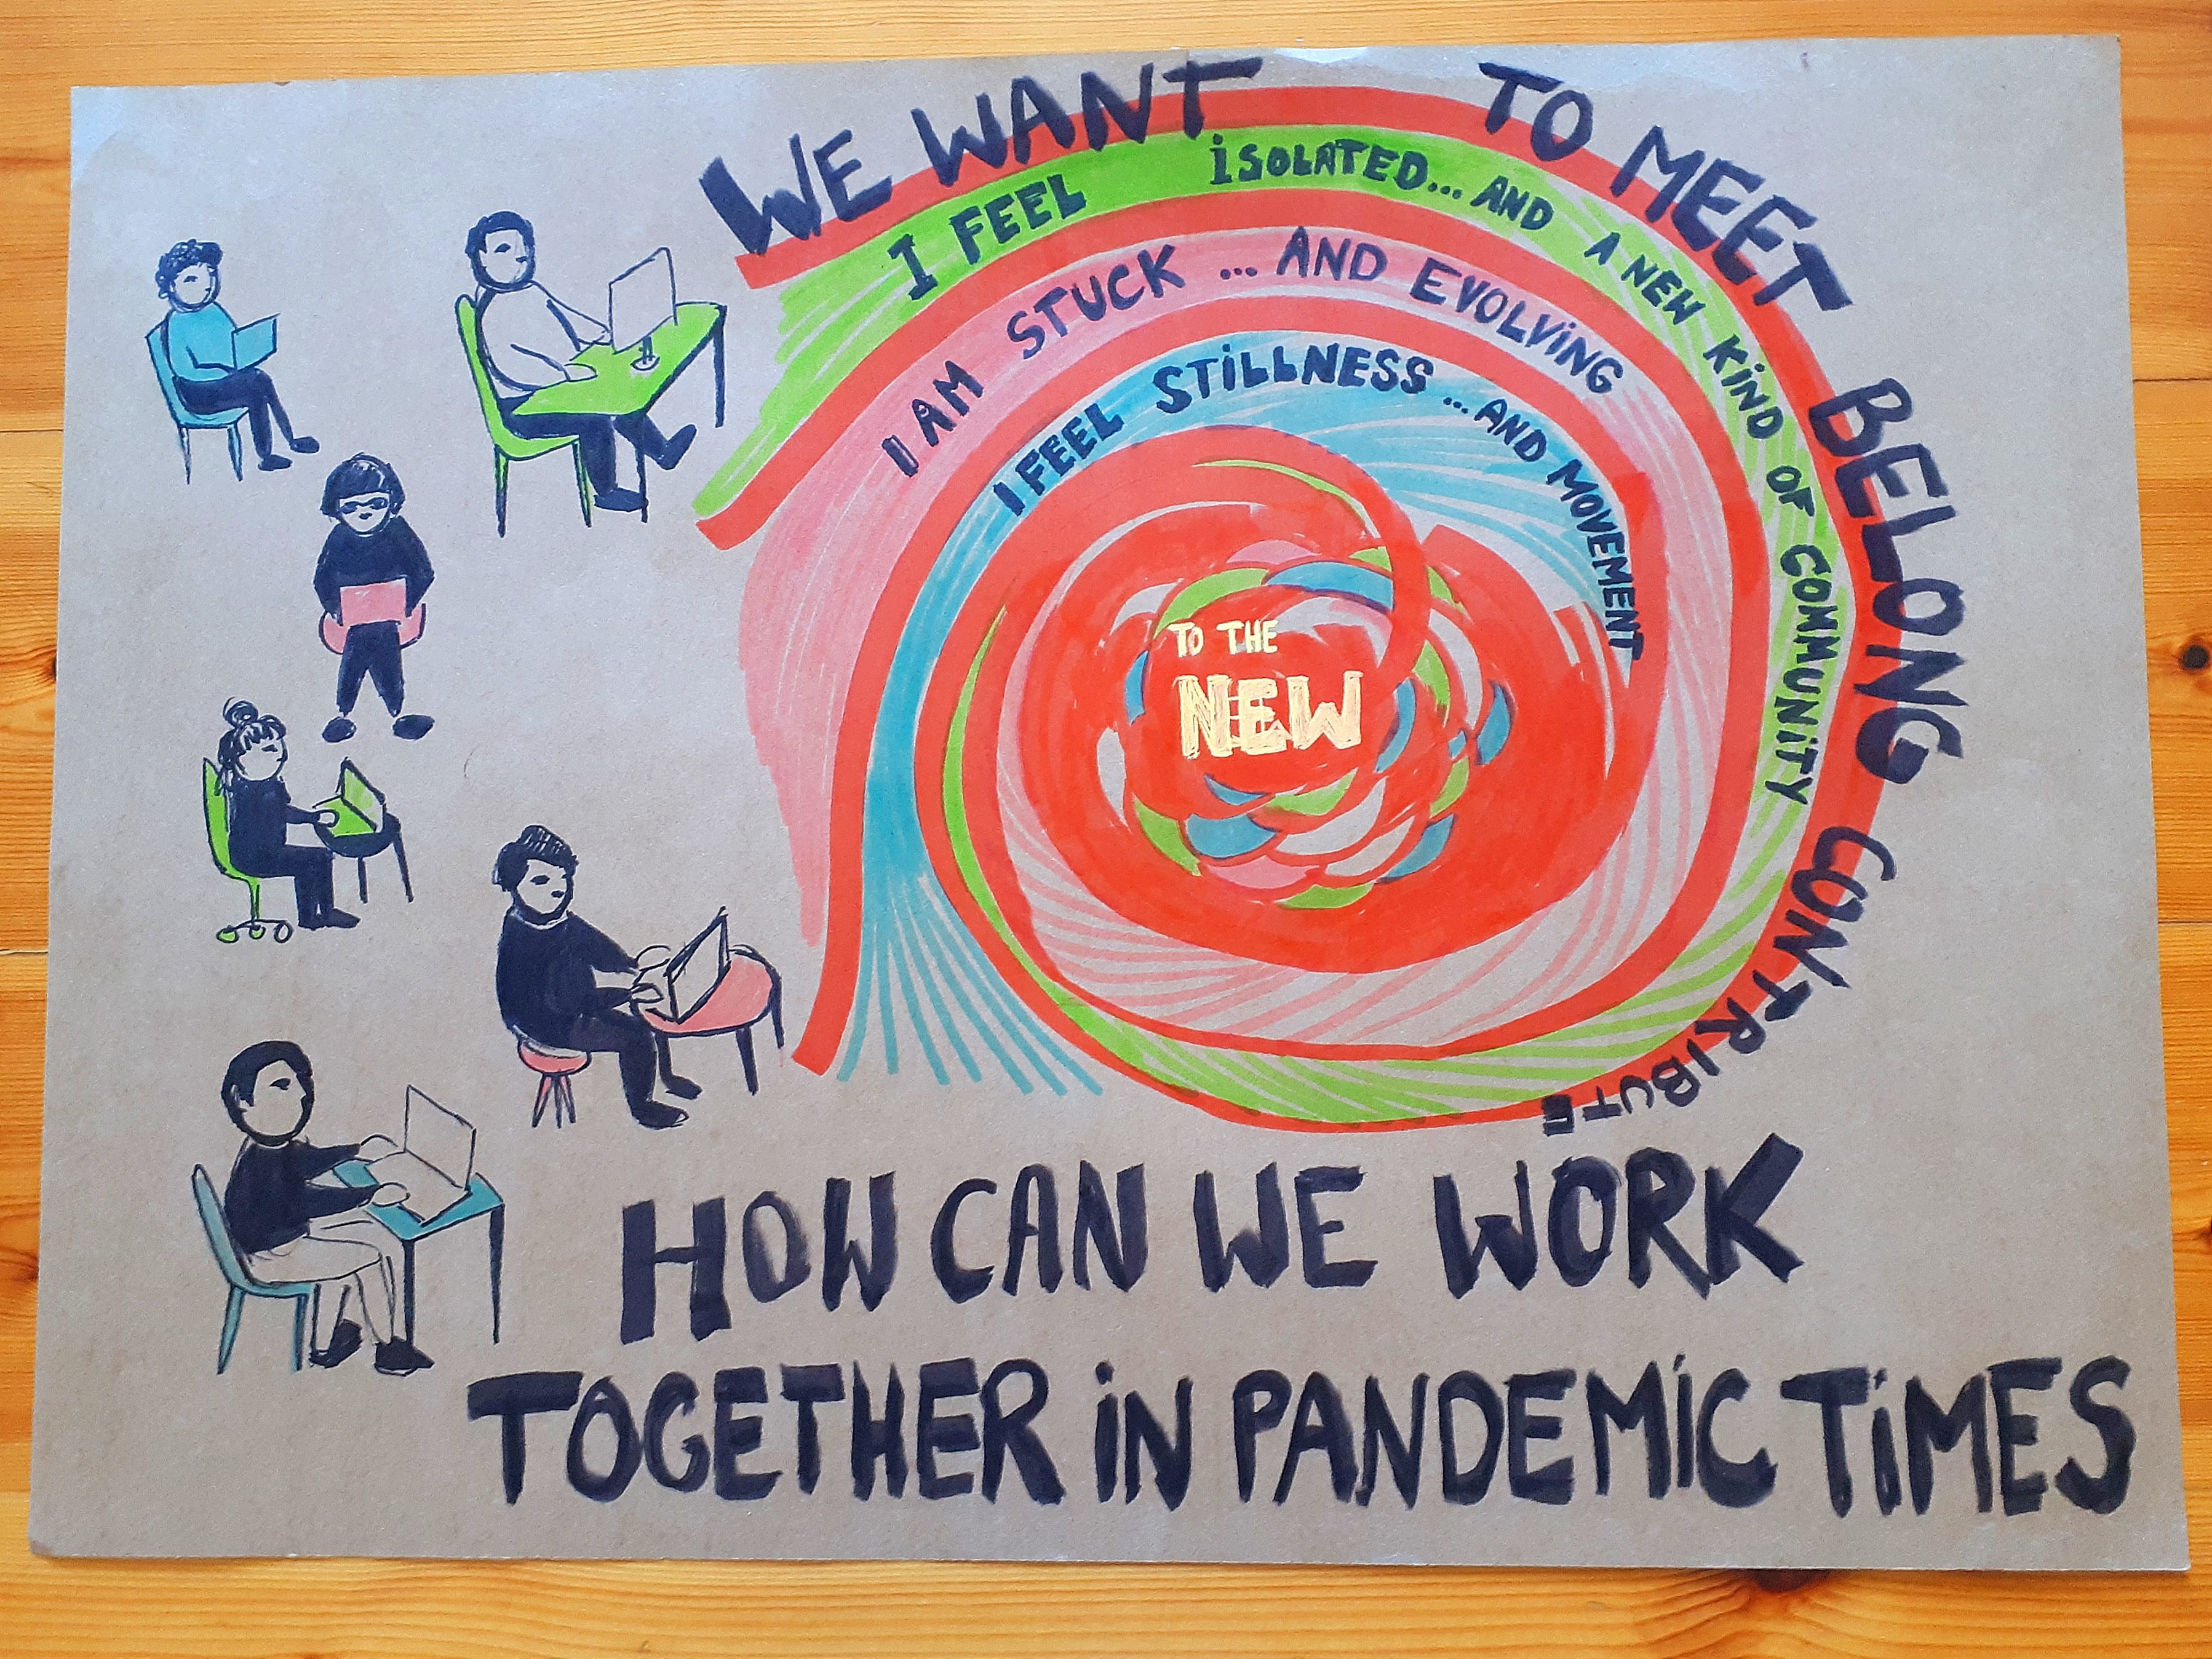 WE WANT TO MEET BELONG CONTRIBUTE
I FEEL iSOLATED... AND A NEW KiND OF COMMUNiTY
I AM STUCK ... AND EVOLViNG
I FEEL STiLLNESS ... AND MOVEMENT
TO THE
NEW
HOW CAN WE WORK
TOGETHER iN PANDEMiC TiMES